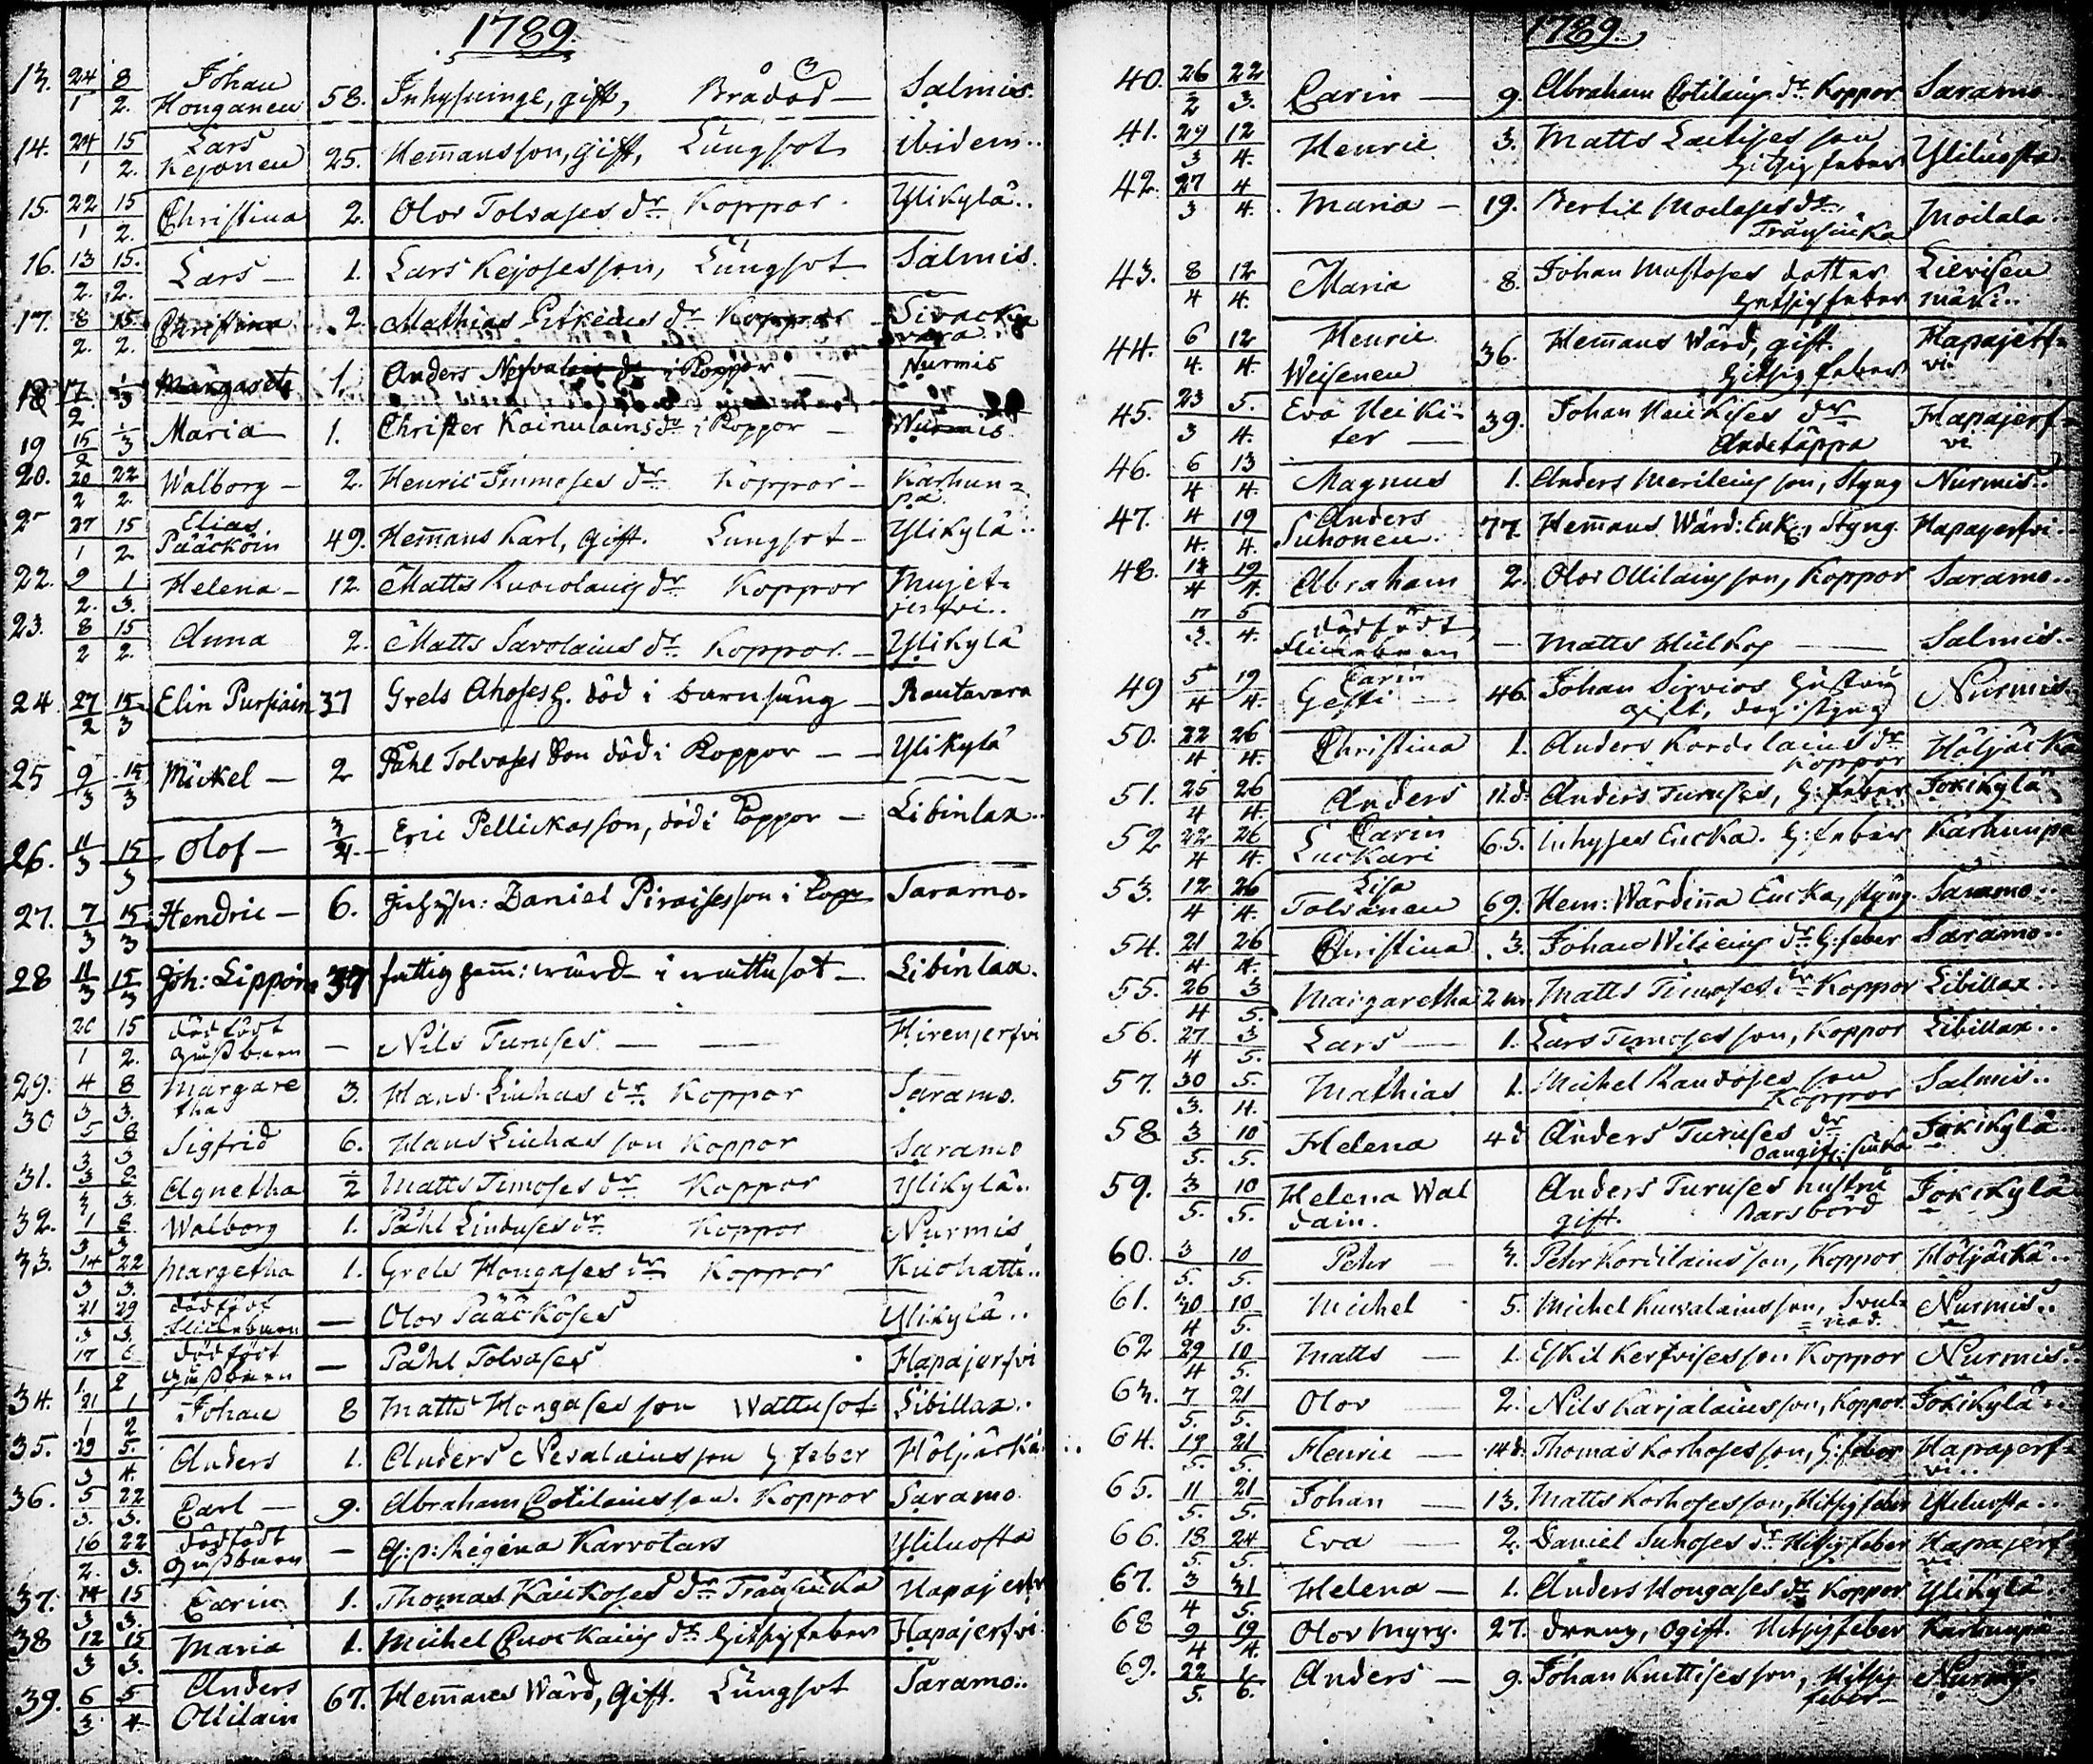 1789.
13. 24/1 8/2. Johan Honganen 58. Inhysinge, gift, Brådöd — Salmis.
14. 24/1 15/2. Lars Kejonen 25. Hemmansson, gift, Lungsot ibidem..
15. 22/1 15/2. Christina 2. Olov Tolvases dr Koppor. Ylikylä..
16. 13/2. 15./2. Lars — 1. Lars Kejoses son, Lungsot Salmis.
17. 8/2. 15/2. Christina 2. Mathias dr Koppor
18 17/2 1/3 Margareta 1. Anders dr i Koppor — Nurmis
19 15/2 1/3 Maria — 1. Christer Kainulains dr i Koppor — Nurmis
20. 20/2 22/2. Walborg — 2. Henric Timmoses dr Koppor — Karhunpä
27/1 15/2 Elias Pääcköin 49. Hemmans Karl, gift. Lungsot — Ylikylä..
22. 9/2. 1/3. Helena — 12. Matts dr Koppor Mujetjerfvi..
23. 8/2 15/2. Anna 2. Matts Savolains dr Koppor. — Ylikylä
24 27/2 15/3 Elin Pursiain 37 Grels Ahoses h. död i barnsäng — Rautavara
25 9/3 15/3 Mickel — 2 Påhl Tolvases Son död i Koppor — — Ylikylä
26. 11/3 15/3 Olof — 3/4 Eric Pellickas son, död i Koppor — Libinlax..
27. 7/3 15/3 Hendric — 6. Inhysn: Daniel Piraises son i Kopp Saramo.
28 11/3 15/3 Joh: Lippoin 37 fattig hem: wärd i wattusot — Libinlax.
20/1 15/2. dödfödt gåssbarn — Nils Turuses — — Hirenjerfvi
29. 4/3 8/3. Margaretha 3. Hans Liuhas dr Koppor Saramo.
30 5/3 8/3 Sigfrid 6. Hans Liuhas son Koppor Saramo
31. 3/3 8/3. Agnetha 1/2 Matts Timoses dr Koppor Ylikylä..
32. 1/3 8/3. Walborg 1. Påhl dr Koppor Nurmis
33. 14/3 22/3. Margetha 1. Grels Hongases dr Koppor Kuohatti..
21/3 29/3. dödfödt flickebarn — Olov Pääcköses Ylikylä..
17/1 6/2 dödfödt gåssbarn — Påhl Tolvases Hapajerfvi
34. 21/1 1/2 Johan 8 Matts Hongases son Wattusot Libillax..
35. 29/3 5./4. Anders 1. Anders Nevalains son h. feber Höljäckä..
36. 5/3. 22/3. Carl — 9. Abraham Cotilains son. Koppor Saramo.
16/2. 22/3. dödfödt gåssbarn — q:p: Regina Karvotars Yliluosta
37. 14/3 15/3. Carin 1. Thomas Kaickoses dr Trånsiucka Hapajerfv
38 12/3 15/3. Maria 1. Michel dr hitsig feber Hapajerfvi.
39. 6/3 5/4 Anders Ollilain 67. Hemmans Wärd, gift. Lungsot Saramo..
1789.
40. 26/2 22/3. Carin — 9. Abraham Cotilains dr Koppor Saramo..
41. 29/3 12/4. Henric 3. Matts son hitsig feber Yliluosta
42. 27/3 4/4. Maria — 19. Bertil Moilases dr Trånsiucka Moilala
43. 8/4 12/4. Maria 8. Johan Mustoses dotter hetsig feber Lievisenmäki..
44. 6/4. 12/4. Henric Weisenen 36. Hemmans Wärd, gift. hitsig feber Hapajerfvi.
45. 23/3 5./4. Eva Heikiter — 39. Johan Heickises dr Andetäppa Hapajerfvi
46. 6/4 13/4. Magnus 1. Anders Meriläins son, Styng Nurmis..
47. 4/4. 19/4. Anders Suhonen. 77. Hemmans Wärd: Enkl, Styng. Hapajerfvi..
48. 19/4. Abraham 2. Olov Ollilains son, Koppor Saramo..
17/3. 5/4. dödfödt flickebarn — Matts Hulkos — Salmis..
49 5/4 19/4. Carin Gesti — 46. Johan Sirvios hustru gift, dog i styng Nurmis.
50. 22/4 26/4. Christina 1. Anders Kordelains dr Koppor Höljäckä
51. 25/4 26/4. Anders 11 d. Anders Turuses, h: feber Jokikylä
52 22/4 26/4. Carin Luckari 65. inhyses Encka. h: feber Karhunpä
53. 12/4 26/4. Lisa Tolvanen 69. Hem: Wärdinna Encka, styng. Saramo..
54. 21/4. 26/4. Christina 3. Johan dr h: feber Saramo..
55. 26/4 3/5. Margaretha 2 m. Matts Timoses dr Koppor Libillax..
56. 27/4 3/5. Lars — 1. Lars Timoses son, Koppor Libillax..
57. 30/3. 5./4. Mathias 1. Michel Raudoses son Koppor Salmis..
58 3/5. 10/5. Helena 4 d Anders Turuses dr oangif: siuka Jokikylä..
59. 3/5. 10/5. Helena Waldain. Anders Turuses hustru gift. barsbörd Jokikylä
60. 3/5. 10/5. Pehr — 3. Pehr Kordelains son, Koppor Höljäckä..
61. 30/4 10/5. Michel 5. Michel Kuvalains son, Svulnad. Nurmis..
62 29/4 10/5. Matts — 1. Eskil Kerfvises son Koppor Nurmis.
63. 7/5. 21/5. Olov — 2. Nils Karjalains son, Koppor. Jokikylä..
64. 19/5. 21/5. Henric — 14 d. Thomas Korhoses son, h: feber Hapajerfvi..
65. 11/5. 21/5. Johan — 13. Matts Korhoses son, Hitsig feber Yliluosta..
66. 18/5. 24/5. Eva — 2. Daniel Suhoses dr Hitsig feber Hapajerfvi
67. 3/4 31/5. Helena — 1. Anders Hongases dr Koppor Ylikylä
68 9/4 19/4. Olov Myry. 27. Dreng, ogift. Hitsig feber Karhunpä
69. 22/5. 1/6. Anders — 9. Johan Kuittises son, Hitsig feber — Nurmis.